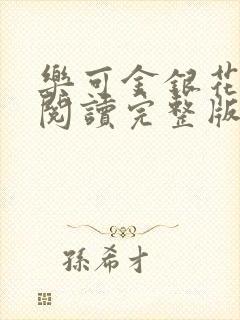 樂可金銀花
閱讀完整版
孫希才